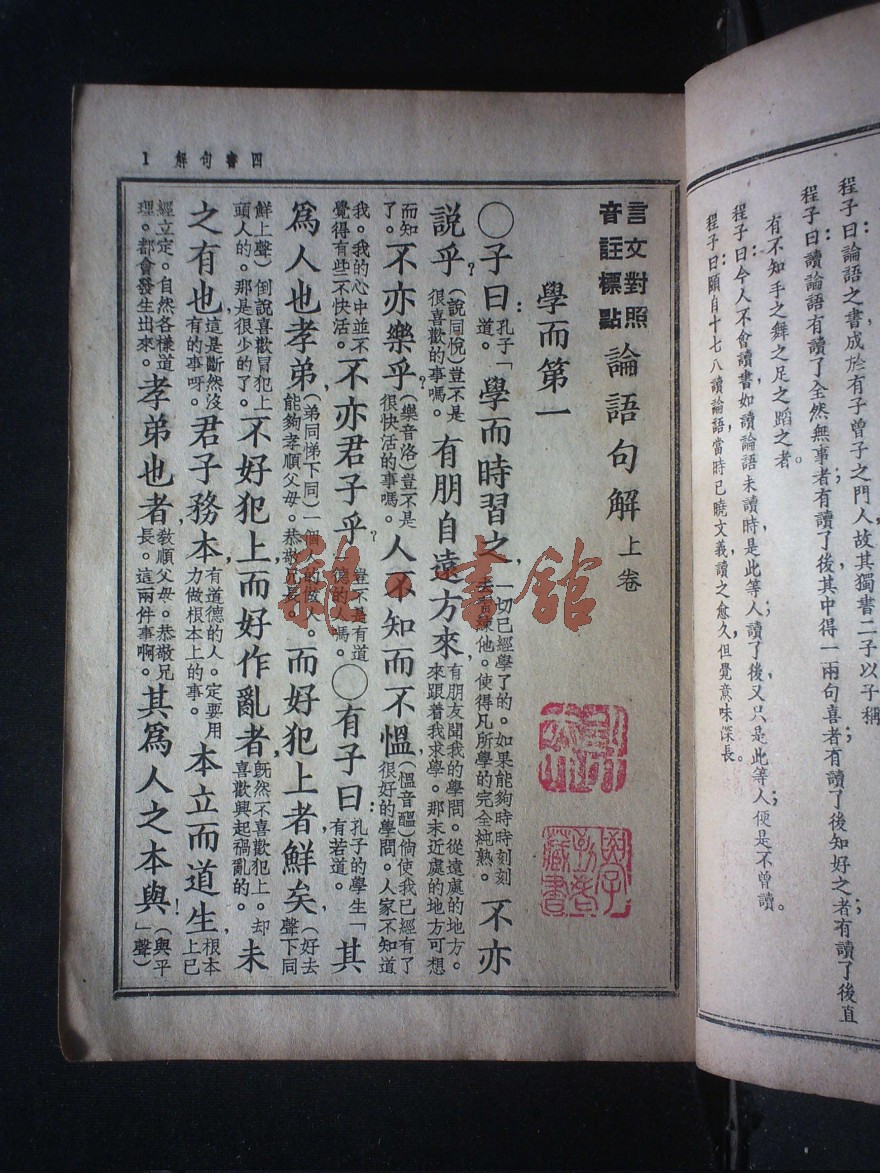 程子曰：論語之書成於有子曾子之門人故其獨書二子以子稱
程子曰讀論語有讀了全然無事者有讀了後其中得一兩句喜者有讀了後知好之者有讀了後直
有不知手之舞之足之蹈之者。
程子曰：今人不會讀書如讀論語未讀時是此等人讀了後又只是此等人便是不曾讀。
程子曰頤自十七八讀論語當時已曉文義讀之愈久但覺意味深長。
四書句解 1
言文對照
音註標點
論語句解 上卷
學而第一
○子曰：孔子道。「學而時習之，一切已經學了的。如果能夠時時刻刻去習練他。使得凡所學的完全純熟。不亦
說乎？（說同悅）豈不是很喜歡的事嗎。有朋自遠方來，有朋友聞我的學問。從遠處的地方。來跟着我求學。那末近處的地方可想
而知了。不亦樂乎？（樂音洛）豈不是很快活的事嗎。人不知而不慍，（慍音醞）倘使我已經有了很好的學問。人家不知道
我。我的心中並不覺得有些不快活。不亦君子乎？豈不是有道德的人嗎。○有子曰：孔子的學生有若道。「其
爲人也孝弟，（弟同悌下同）一個人的做人。能夠孝順父母。恭敬兄長。而好犯上者鮮矣，（好去聲下同
鮮上聲）倒說喜歡冒犯上頭人的。那是很少的了。不好犯上，而好作亂者，旣然不喜歡犯上。却喜歡興起禍亂的。未
之有也，這是斷然沒有的事呀。君子務本，有道德的人。定要用力做根本上的事。本立而道生，根本上已
經立定。自然各樣道理。都會發生出來。孝弟也者，敎順父母。恭敬兄長。這兩件事啊。其爲人之本與！」（與平聲）
雜·書館
藏書